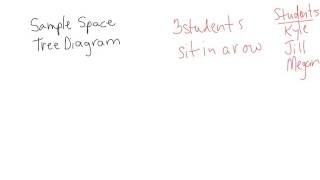 Sample Space
Tree Diagram
3 students
sit in a row
Students
Kyle
Jill
Megan